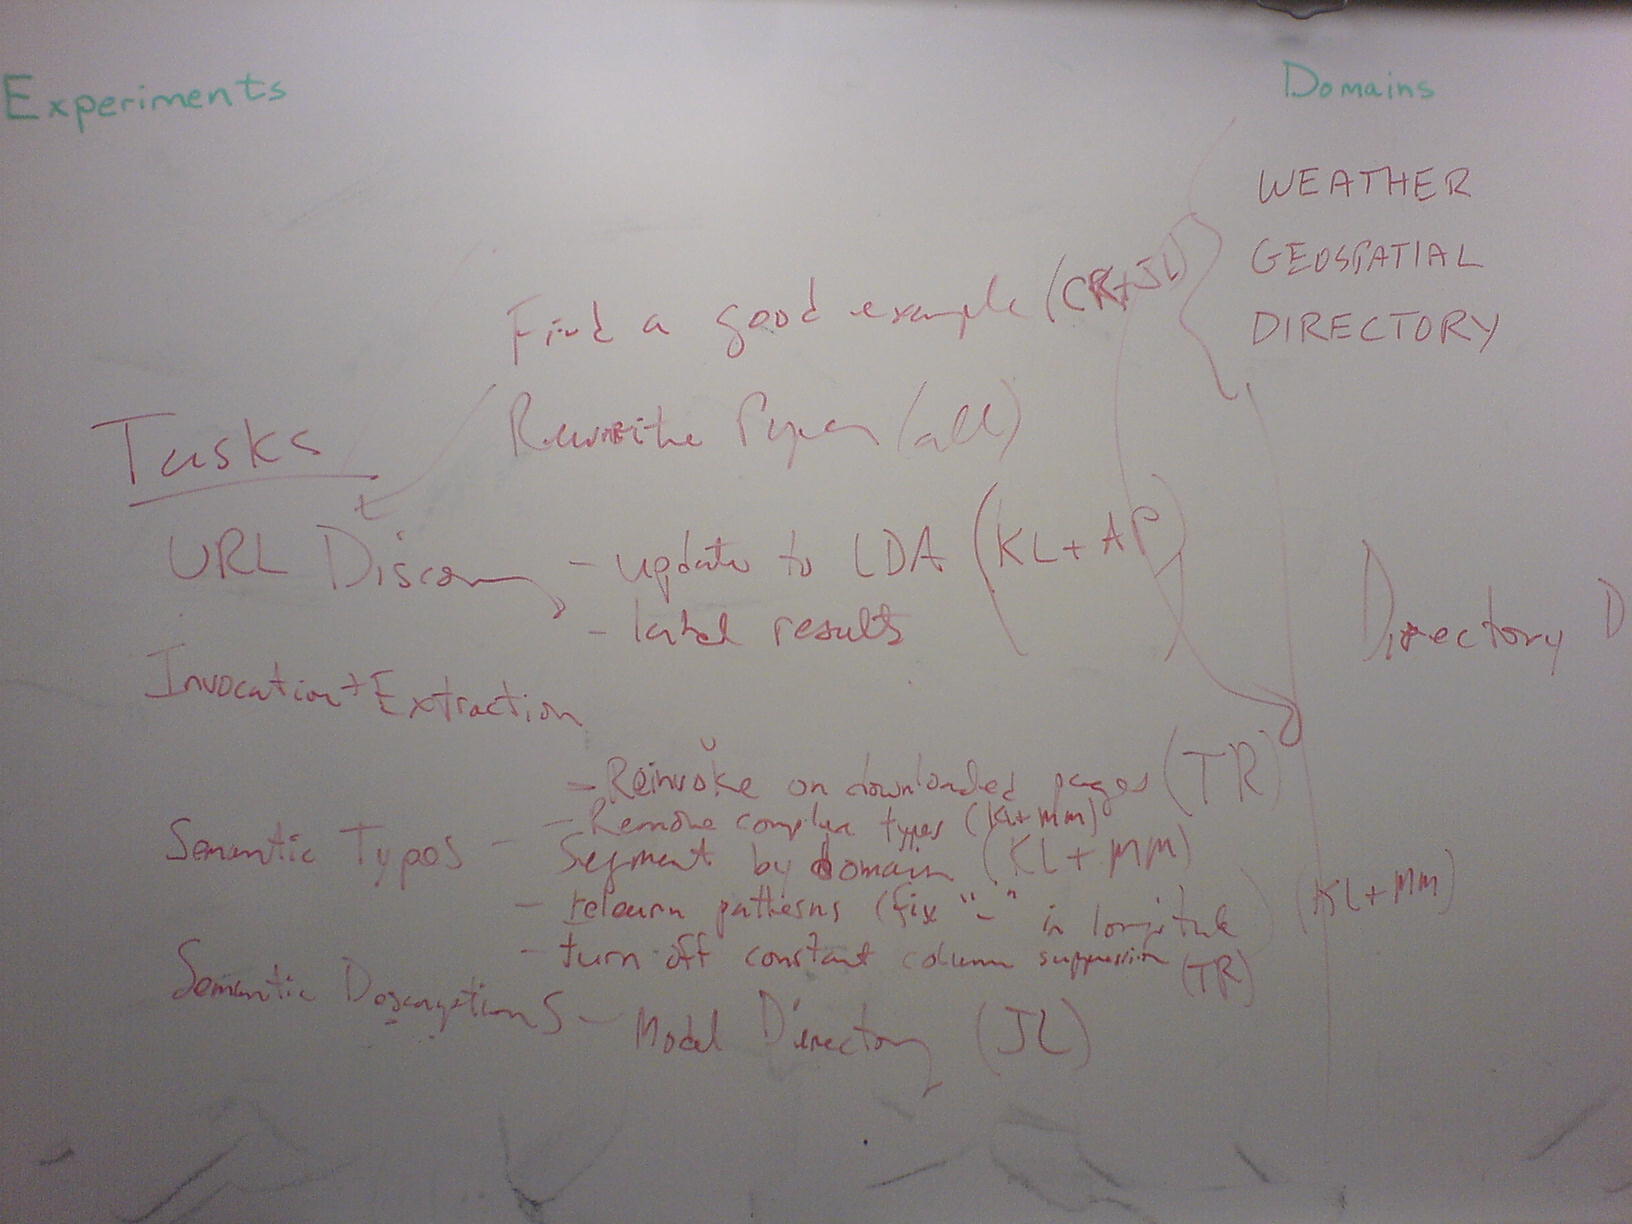 Experiments
Domains
WEATHER
GEOSPATIAL
DIRECTORY
Find a good example (CK+JL)
Rewrite Paper (all)
Tasks
URL Discovery - update to LDA (KL+AP)
- label results
Directory D
Invocation + Extraction
- Reinvoke on downloaded pages (TR)
- Remove complex types (KL+MM)
Semantic Types - Segment by domain (KL+MM)
- relearn patterns (fix "-" in longitude) (KL+MM)
- turn off constant column suppression (TR)
Semantic Descriptions - Model Directory (JL)